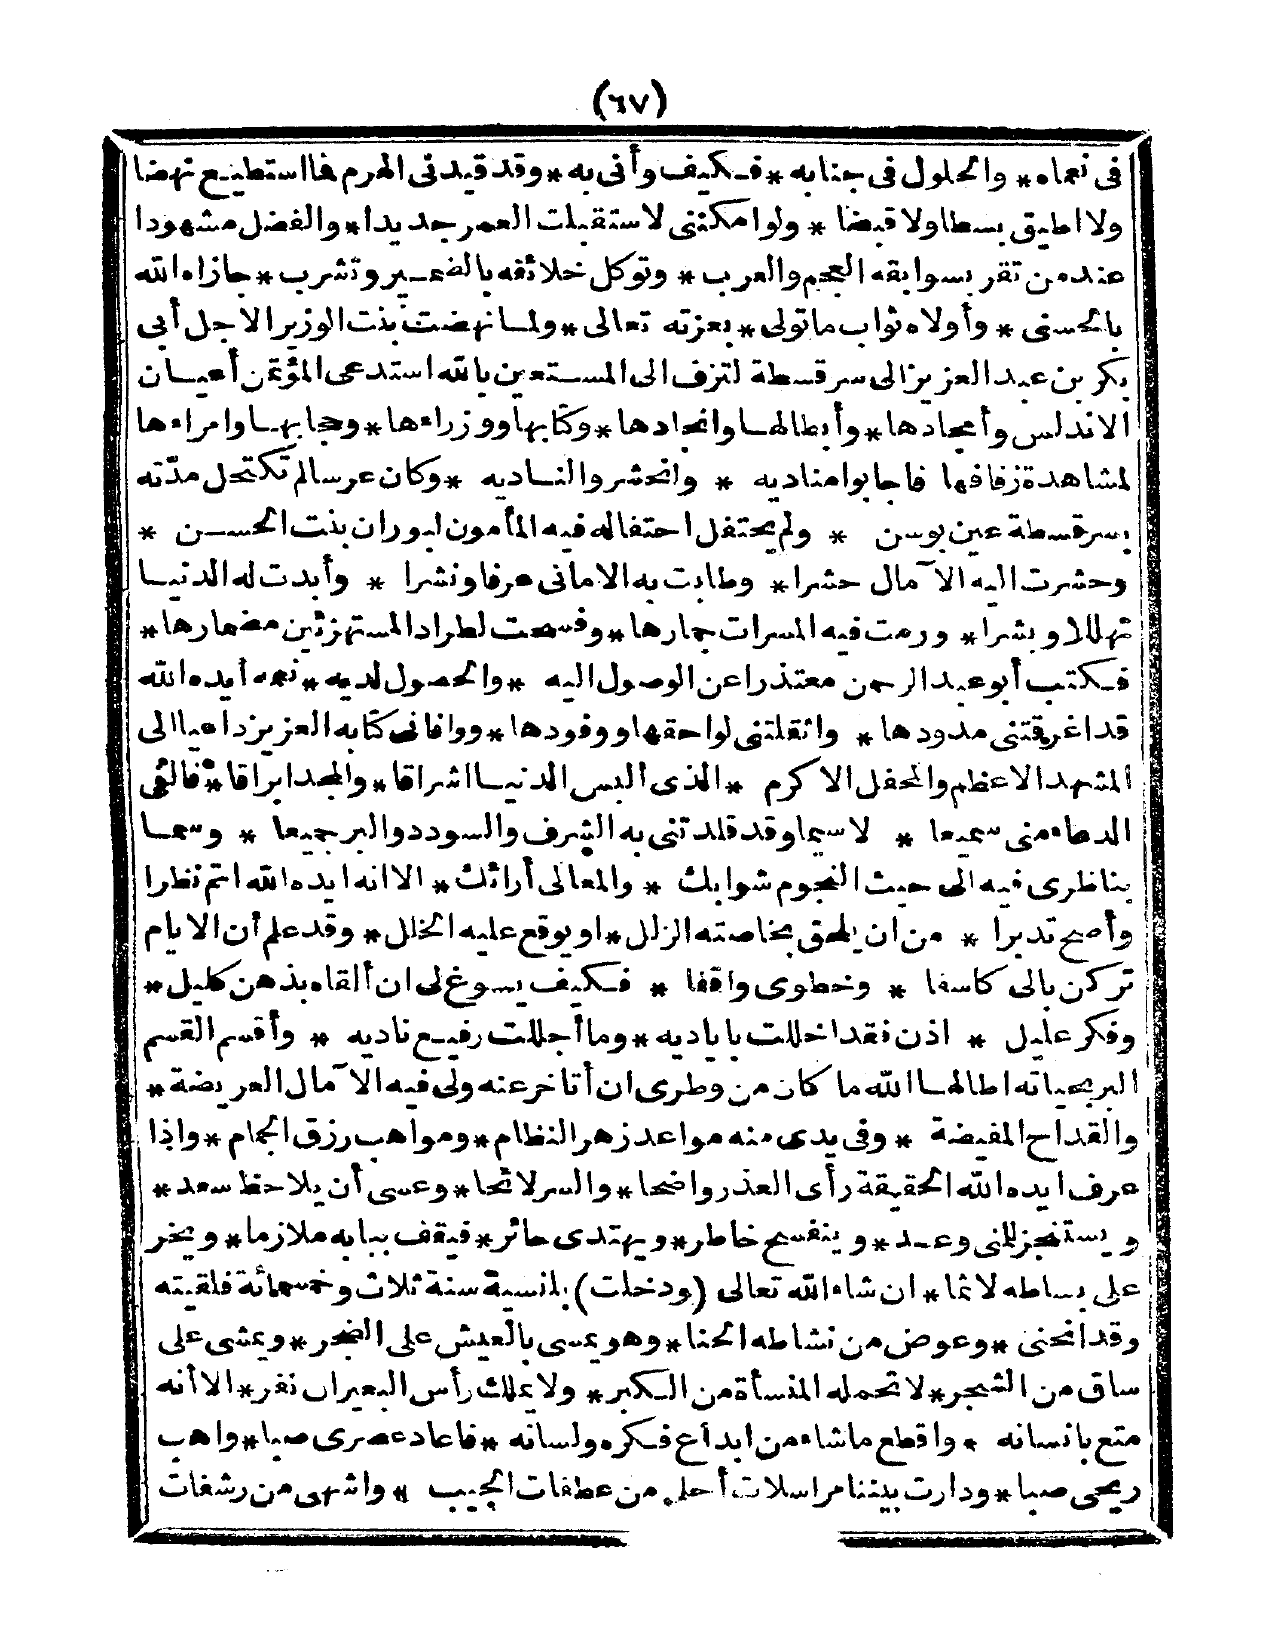 (٦٧)
فى نعماه* والحلول فى جنابه *فكيف وأنى به *وقد قيدنى الهرم فما استطيع نهضا
ولا اطيق بسطا ولا قبضا * ولو امكننى لاستقبلت العمر جديدا* والفضل مشهودا
عند من تقر بسوابقه العجم والعرب* وتوكل خلائقه بالضمير وتشرب* جازاه الله
بالحسنى * وأولاه ثواب ما تولى* بعزته تعالى *ولما نهضت بنت الوزير الاجل أبى
بكر بن عبد العزيز الى سرقسطة لتزف الى المستعين بالله استدعى المؤتمن أعيان
الاندلس وأمجادها* وأبطالها وانجادها* وكتابها ووزراءها* وحجابها وامراءها
لمشاهدة زفافها فاجابوا مناديه * وانحشر والناديه *وكان عرسا لم تكتحل مدته
بسرقسطة عين بوسن * ولم يحتفل احتفاله فيه المأمون لبوران بنت الحسن *
وحشرت اليه الآمال حشرا* وطابت به الامانى عرفا ونشرا * وأبدت له الدنيا
تهللا وبشرا* ورمت فيه المسرات جمارها* وفسحت لطراد المستهزئين مضمارها*
فكتب أبو عبد الرحمن معتذرا عن الوصول اليه *والحصول لديه* نعمه أيده الله
قد اغرقتنى مدودها* واثقلتنى لواحقها ووفودها* ووافانى كتابه العزيز داعيا الى
المشهد الاعظم والمحفل الاكرم *الذى البس الدنيا اشراقا* والمجد ابراقا* فالتقى
الدعاء منى سميعا * لا سيما وقد قلدتنى به الشرف والسودد والبر جميعا * وسما
بناظرى فيه الى حيث النجوم شوابك * والمعالى أرائك* الا انه ايده الله اتم نظرا
وأصح تدبرا * من ان يلحق بخاصته الزلل* او يوقع عليه الخلل* وقد علم أن الايام
تركن بالى كاسفا * وخطوى واقفا * فكيف يسوغ لى ان ألقاه بذهن كليل*
وفكر عليل * اذن فقد اخللت باياديه* وما أجللت رفيع ناديه * وأقسم القسم
البر بحياته اطالها الله ما كان من وطرى ان أتاخر عنه ولى فيه الآمال العريضة*
والقداح المفيضة * وفى يدى منه مواعد زهر النظام* ومواهب رزق الجمام *واذا
عرف ايده الله الحقيقة رأى العذر واضحا* والسر لائحا* وعسى أن يلاحظ سعد*
ويستنجز للنى وعد* وينفسح خاطر* ويهتدى حائر* فيقف ببابه ملازما* ويخر
على بساطه لائما* ان شاء الله تعالى (ودخلت) بلنسية سنة ثلاث وخمسمائة فلقيته
وقد انحنى *وعوض من نشاطه الحنا* وهو يمسى بالعيش على الضجر* ويمشى على
ساق من الشجر* لا تحمله المنسأة من الكبر* ولا يملك رأس البعير ان نفر* الا أنه
متع بانسانه * واقطع ما شاء من ابداع فكره ولسانه *فاعاد عصرى صبا* واهب
ريحى صبا* ودارت بيننا مراسلات أحلى من عطفات الحبيب * واشهى من رشفات